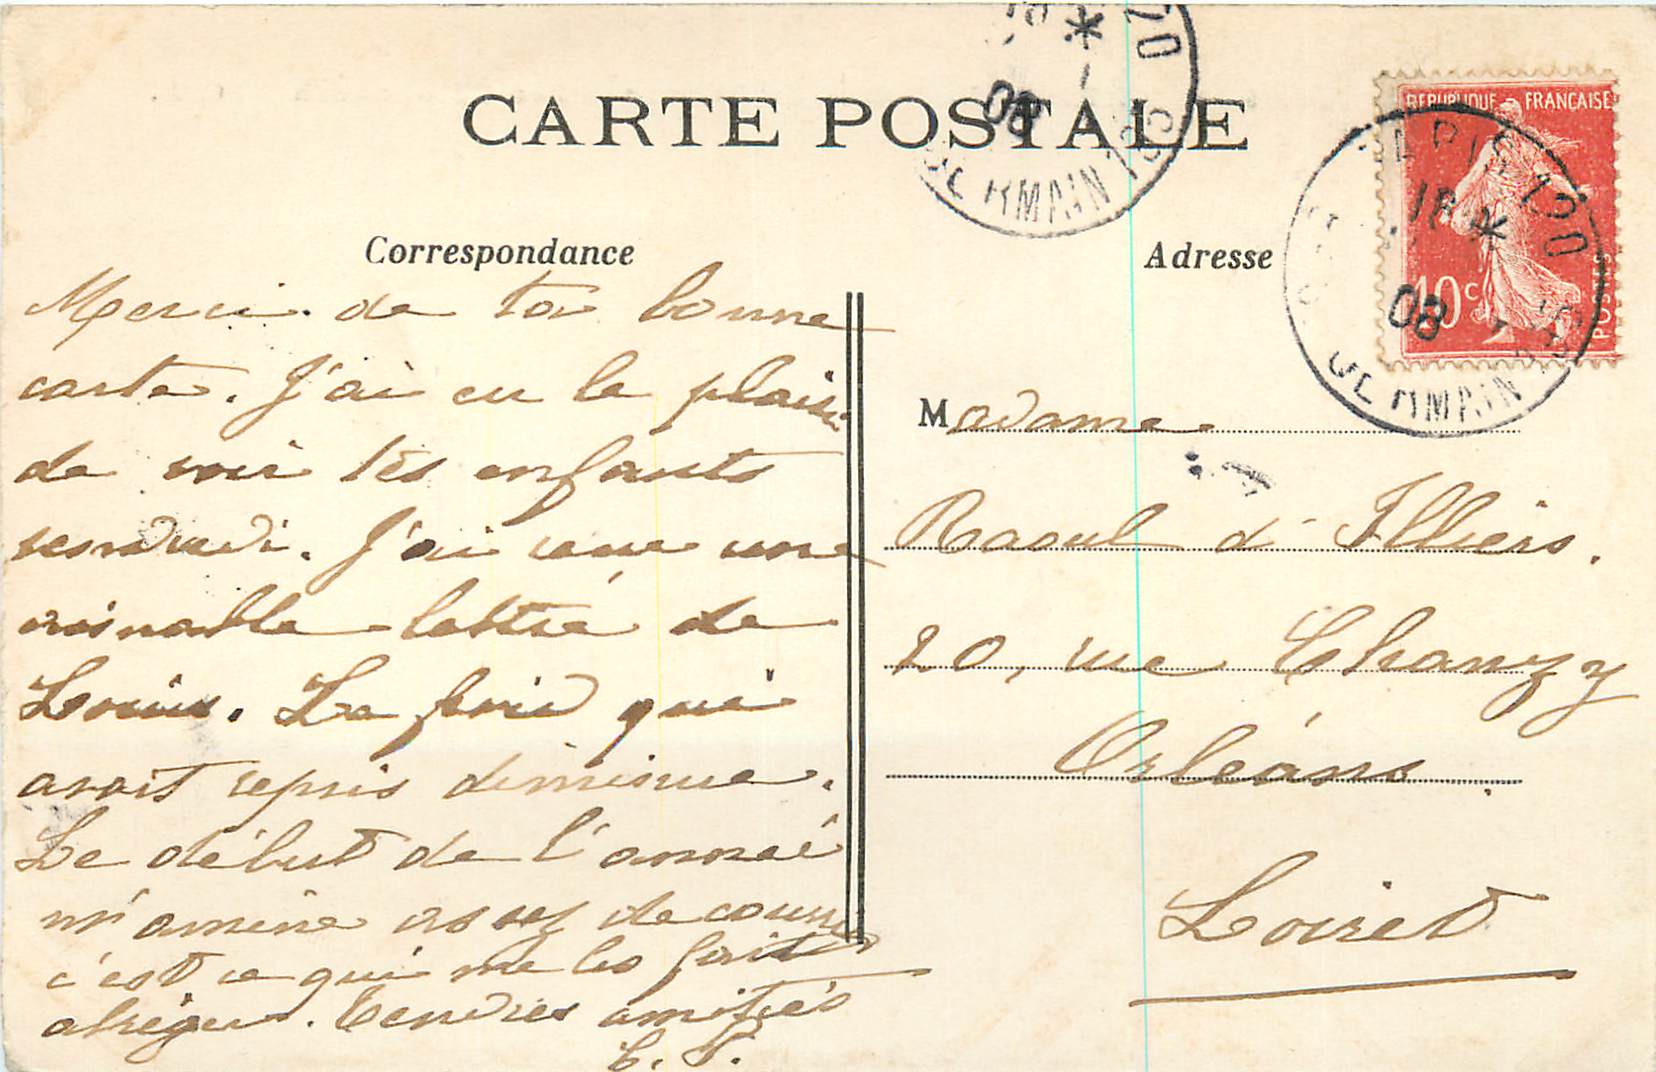 CARTE POSTALE
Correspondance
Adresse
REPUBLIQUE FRANCAISE
10c
POSTES
PARIS 120
18 *
08
GERMAIN 195
20
*
08
GERMAIN 195
Merci de ta bonne
carte. J'ai eu le plaisir
de voir les enfants
vendredi. J'ai une
aimable lettre de
Louis. Le froid qui
avait repris diminue.
Le début de l'année
m'amène assez de
c'est ce qui me les fait
abréger. Tendres amitiés
Madame
Raoul d'Illiers.
20, rue Chanzy
Orléans.
Loiret